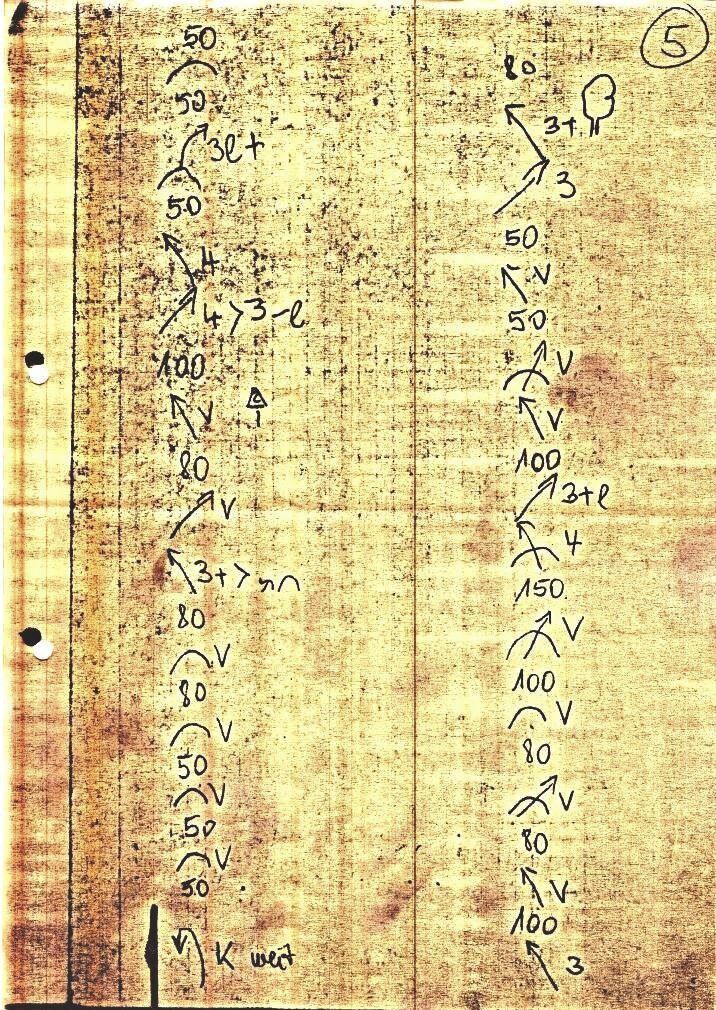 5
50
50
3l+
50
4
4 > 3-l
100
V
80
V
3+ >
80
V
80
V
50
V
50
V
50
K weit
80
3+
3
50
V
50
V
V
100
3+l
4
150
V
100
V
80
V
80
V
100
3